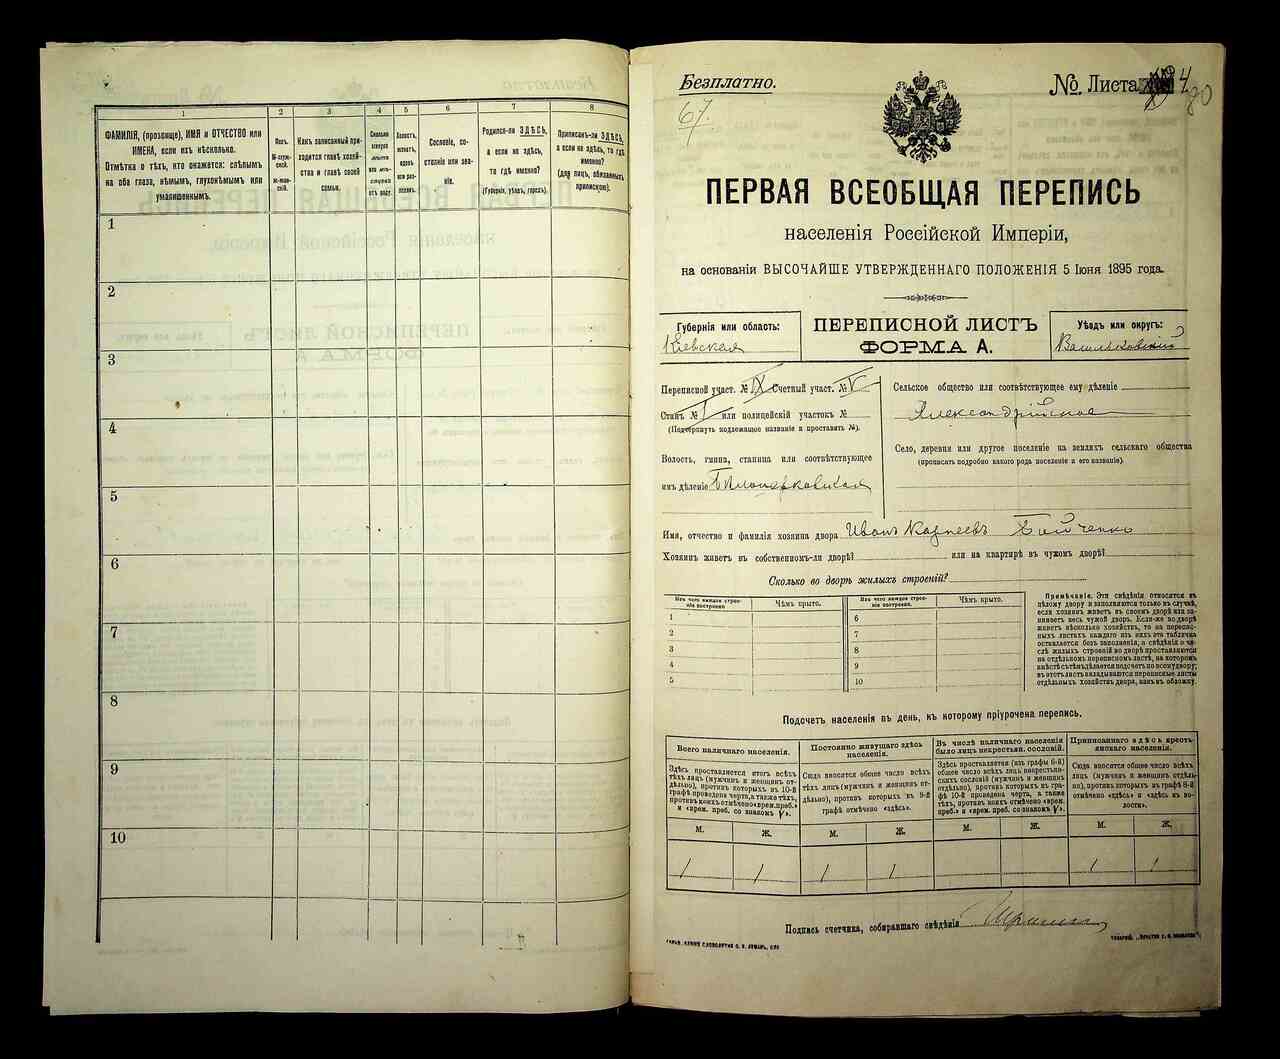 1
2
3
4
5
6
7
8
ФАМИЛІЯ, (прозвище), ИМЯ и ОТЧЕСТВО или
ИМЕНА, если ихъ нѣсколько.
Отмѣтка о тѣхъ, кто окажется: слѣпымъ
на оба глаза, нѣмымъ, глухонѣмымъ или
умалишеннымъ.
Полъ.
М-мужской.
Ж-женскій.
Какъ записанный приходится главѣ хозяйства и главѣ своей
семьи.
Сколько
минуло
лѣтъ
или мѣсяцевъ
отъ роду.
Холостъ,
женатъ,
вдовъ
или разведенъ.
Сословіе, состояніе или званіе.
Родился-ли ЗДѢСЬ,
а если не здѣсь,
то гдѣ именно?
(Губернія, уѣздъ, городъ).
Приписанъ-ли ЗДѢСЬ,
а если не здѣсь, то гдѣ
именно?
(для лицъ, обязанныхъ
припискою).
1
2
3
4
5
6
7
8
9
10
Безплатно.
№ Листа 4
80
67.
ПЕРВАЯ ВСЕОБЩАЯ ПЕРЕПИСЬ
населенія Россійской Имперіи,
на основаніи ВЫСОЧАЙШЕ УТВЕРЖДЕННАГО ПОЛОЖЕНІЯ 5 Іюня 1895 года.
Губернія или область:
Кіевская
ПЕРЕПИСНОЙ ЛИСТЪ
ФОРМА А.
Уѣздъ или округъ:
Васильковскій
Переписной участ. № IX Счетный участ. № V
Станъ № I или полицейскій участокъ №
(Подчеркнуть подлежащее названіе и проставить №).
Волость, гмина, станица или соотвѣтствующее
имъ дѣленіе Бѣлоцерковская
Сельское общество или соотвѣтствующее ему дѣленіе
Александрійское
Село, деревня или другое поселеніе на земляхъ сельскаго общества
(прописать подробно какого рода поселеніе и его названіе).
Имя, отчество и фамилія хозяина двора Иванъ Карпеевъ Бойченко
Хозяинъ живетъ въ собственномъ-ли дворѣ? или на квартирѣ въ чужомъ дворѣ?
Сколько во дворѣ жилыхъ строеній?
Изъ чего каждое строеніе построено
Чѣмъ крыто.
Изъ чего каждое строеніе построено.
Чѣмъ крыто.
1
2
3
4
5
6
7
8
9
10
Примѣчаніе. Эти свѣдѣнія относятся къ
цѣлому двору и заполняются только въ случаѣ,
если хозяинъ живетъ въ своемъ дворѣ или занимаетъ весь чужой дворъ. Если-же во дворѣ
живетъ нѣсколько хозяйствъ, то на переписныхъ листахъ каждаго изъ нихъ эта табличка
оставляется безъ заполненія, а свѣдѣнія о числѣ жилыхъ строеній во дворѣ проставляются
на отдѣльномъ переписномъ листѣ, на которомъ
вмѣстѣ съ тѣмъ дѣлается подсчетъ по всему двору;
въ этотъ листъ вкладываются переписные листы
отдѣльныхъ хозяйствъ двора, какъ въ обложку.
Подсчетъ населенія въ день, къ которому пріурочена перепись.
Всего наличнаго населенія.
Здѣсь проставляется итогъ всѣхъ
тѣхъ лицъ (мужчинъ и женщинъ отдѣльно), противъ которыхъ въ 10-й
графѣ проведена черта, а также тѣхъ,
противъ коихъ отмѣчено «врем. преб.»
и «врем. преб. со знакомъ V».
Постоянно живущаго здѣсь
населенія.
Сюда вносится общее число всѣхъ
тѣхъ лицъ (мужчинъ и женщинъ отдѣльно), противъ которыхъ въ 9-й
графѣ отмѣчено «здѣсь».
Въ числѣ наличнаго населенія
было лицъ некрестьян. сословій.
Здѣсь проставляется (изъ графы 6-й)
общее число всѣхъ лицъ некрестьянскихъ сословій (мужчинъ и женщинъ
отдѣльно), противъ которыхъ въ графѣ 10-й проведена черта, а также
тѣхъ, противъ коихъ отмѣчено «врем.
преб.» и «врем. преб. со знакомъ V».
Приписаннаго здѣсь крестьянскаго населенія.
Сюда вносится общее число всѣхъ
лицъ (мужчинъ и женщинъ отдѣльно), противъ которыхъ въ графѣ 8-й
отмѣчено «здѣсь» и «здѣсь въ волости».
М. Ж. М. Ж. М. Ж. М. Ж.
1 1 1 1 1 1
Подпись счетчика, собиравшаго свѣдѣнія